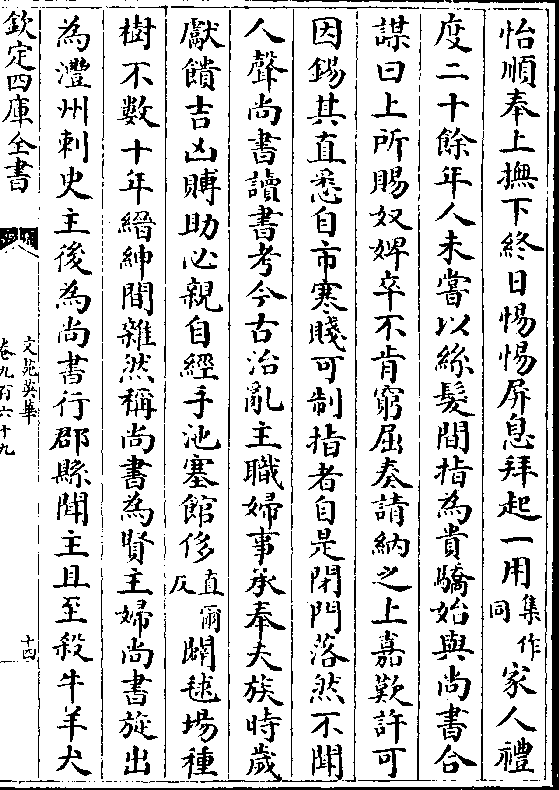 怡順奉上撫下終日惕惕屏息拜起一用集作同家人禮
度二十餘年人未嘗以絲髮間指為貴驕始與尚書合
謀曰上所賜奴婢卒不肯窮屈奏請納之上嘉歎許可
因錫其直悉自市寒賤可制指者自是閉門落然不聞
人聲尚書讀書考今古治亂主職婦事承奉夫族時歲
獻饋吉凶賻助必親自經手池塞館侈直爾反闢毬場種
樹不數十年縉紳間雜然稱尚書為賢主婦尚書旋出
為灃州刺史主後為尚書行郡縣聞主且至殺牛羊犬
欽定四庫全書
文苑英華
卷九百六十九
十四